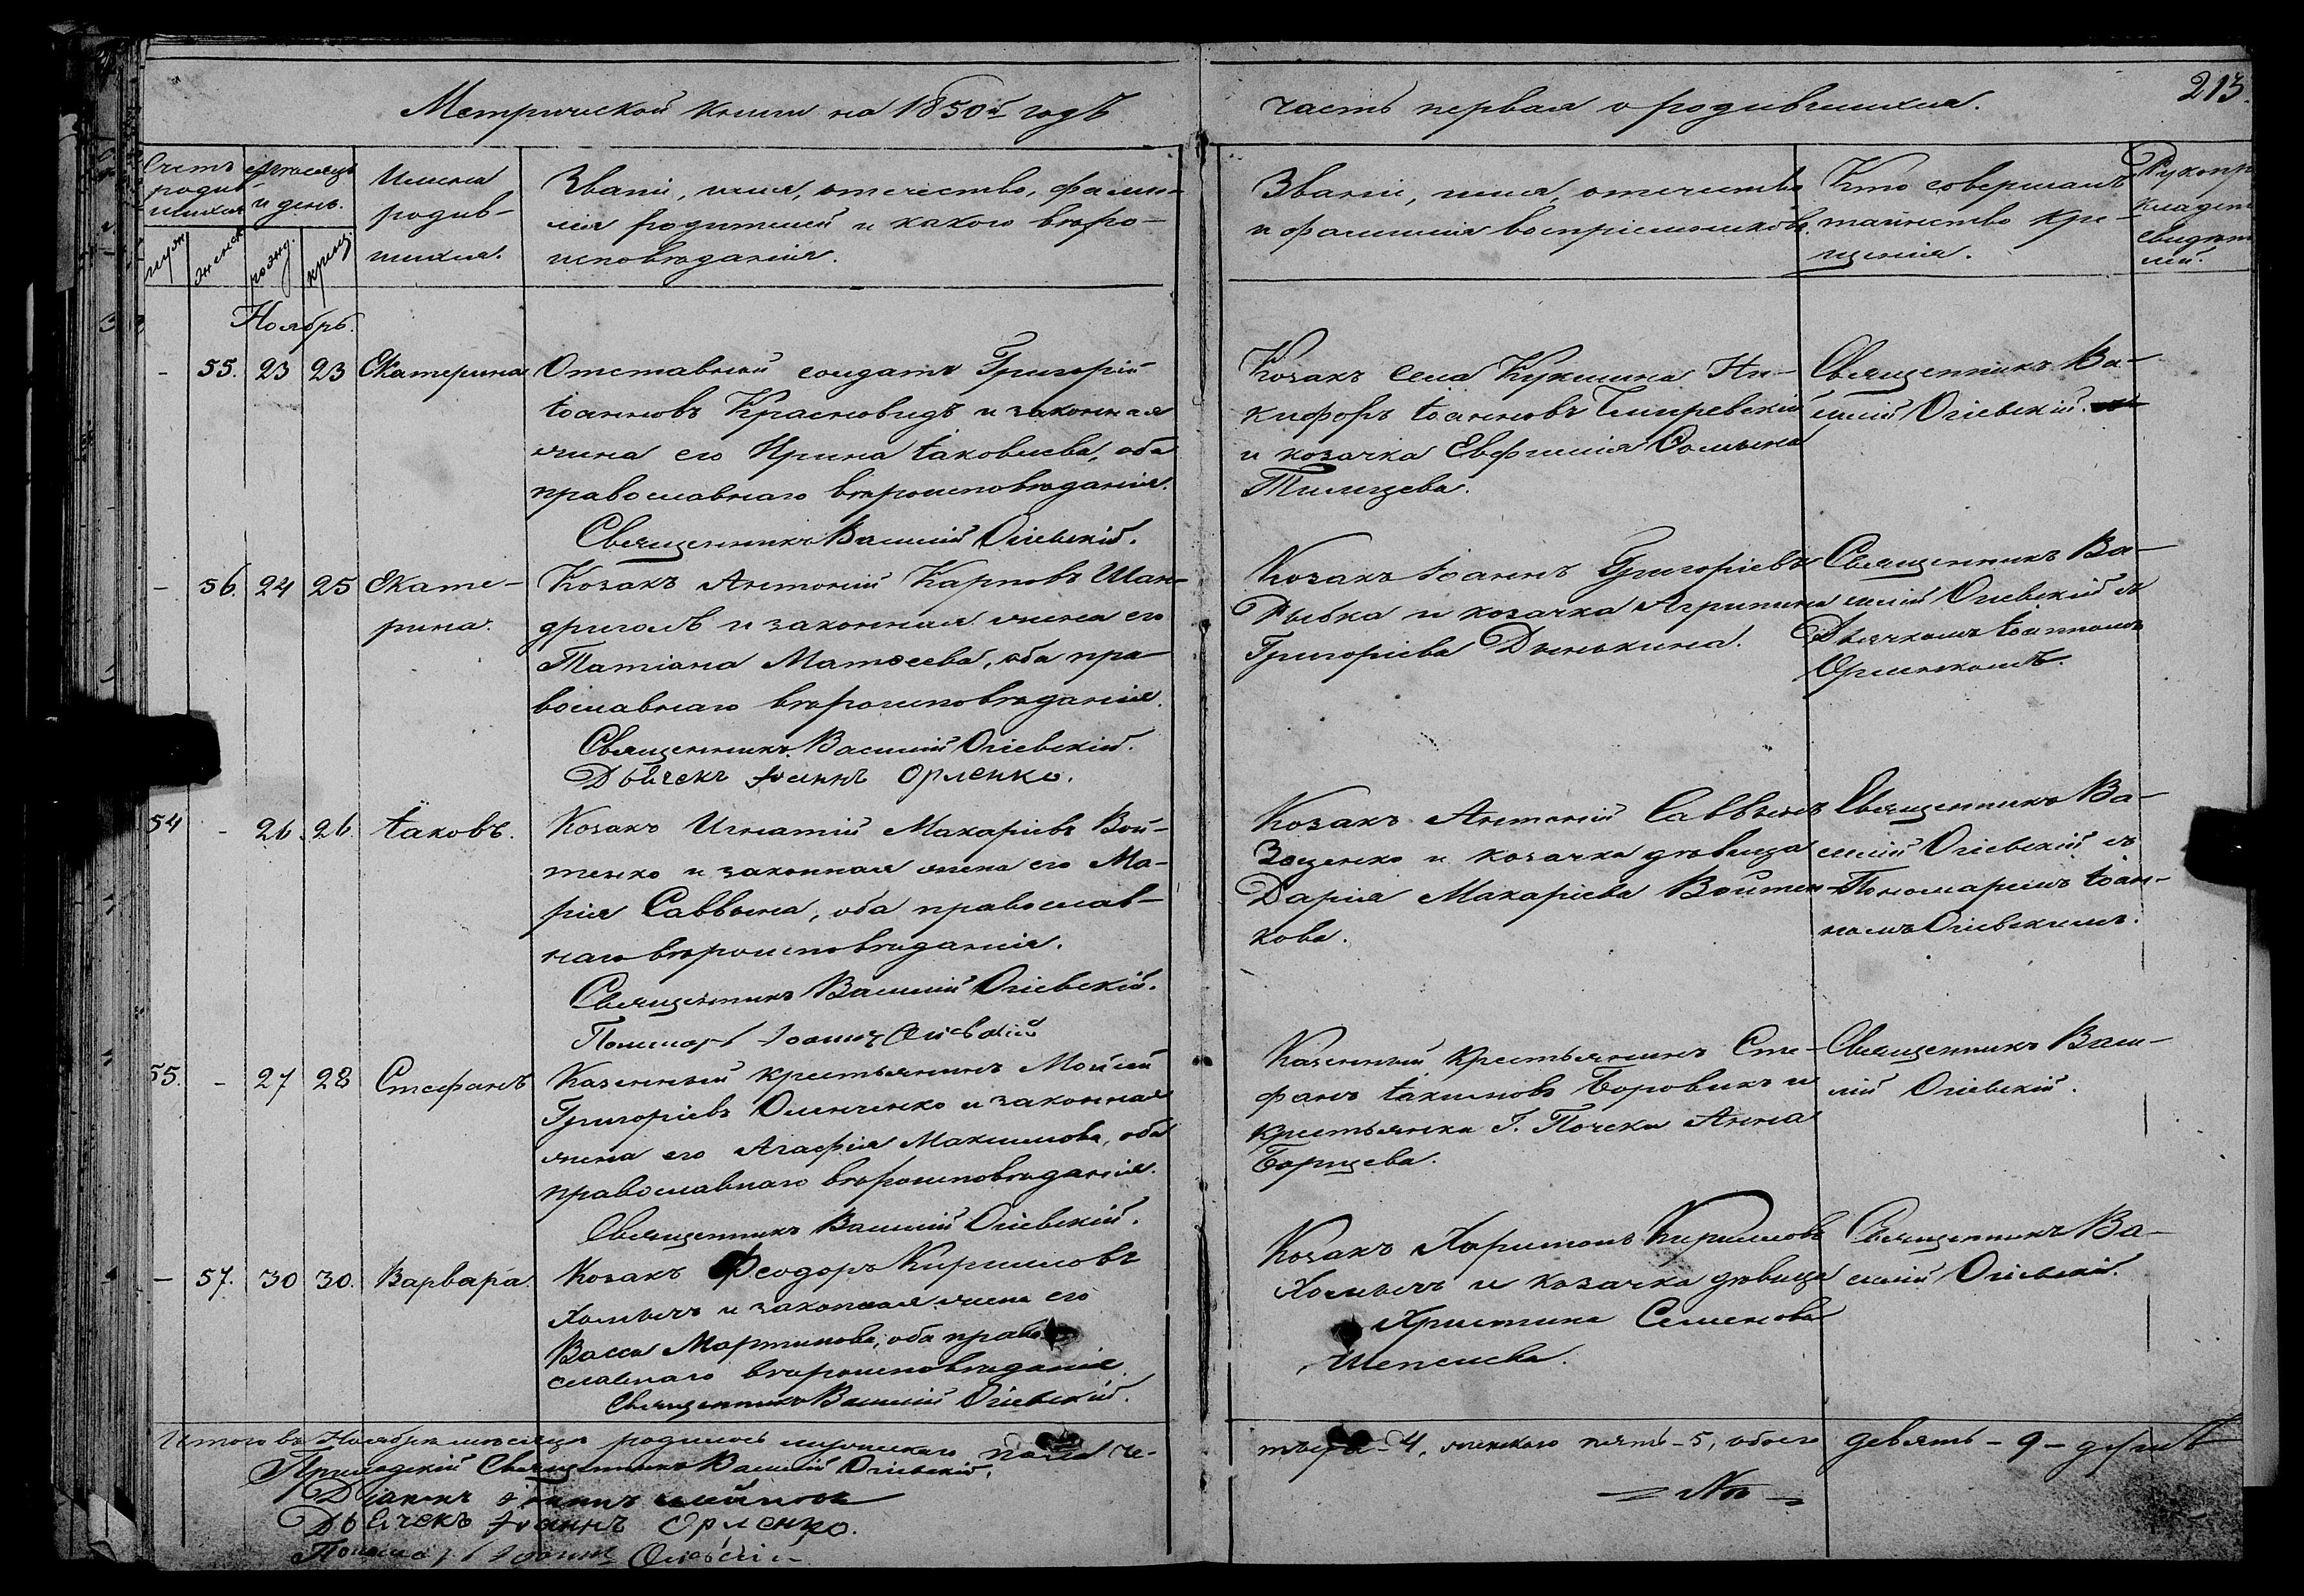 Метрической книги на 1850й годъ
часть первая о родившихся.
213.
Счетъ родив-шихся
Мѣсяцъ и день.
Имена
родив-
шихся.
Званіе, имя, отечество, фами-
лія родителей и какого вѣро-
исповѣданія.
Званіе, имя, отечество
и фамилія воспріемниковъ.
Кто совершалъ
таинство кре-
щенія.
Рукопр
кладст
свидѣт
лей.
муж.
женск
рожд.
крещ.
Ноябрь.
- 55. 23 23 Екатерина
Отставный солдатъ Григорій
Іоанновъ Красновидъ и законная
жена его Ирина Іаковлева, оба
православнаго вѣроисповѣданія.
Священникъ Василій Огіевскій.
Козакъ села Кукшина Ни-
кифоръ Іоанновъ
и козачка Евфимія
Священникъ Ва-
силій Огіевскій.
- 56. 24 25 Екате-
рина.
Козакъ Антоній Карповъ Шан-
дриголъ и законная жена его
Татіана Матѳеева, оба пра-
вославнаго вѣроисповѣданія.
Священникъ Василій Огіевскій.
Дьячекъ Іоаннъ Орленко.
Козакъ Іоаннъ Григоріевъ
Рыбка и козачка Агрипина
Григоріева Дынькина.
Священникъ Ва-
силій Огіевскій съ
Дьячкомъ Іоанномъ
Орленкомъ.
54 - 26. 26. Іаковъ.
Козакъ Игнатій Макаріевъ Вой-
тенко и законная жена его Ма-
рія Саввина, оба православ-
наго вѣроисповѣданія.
Священникъ Василій Огіевскій.
Пономарь Іоаннъ Огіевскій
Козакъ Антоній Саввинъ
Зощенко и козачка дѣвица
Дарія Макаріева Войтен-
кова.
Священникъ Ва-
силій Огіевскій съ
Пономаремъ Іоан-
номъ Огіевскимъ.
55. - 27 28 Стефанъ
Казенный крестьянинъ Мойсей
Григоріевъ Оленченко и законная
жена его Агафія Максимова, оба
православнаго вѣроисповѣданія.
Священникъ Василій Огіевскій.
Казенный крестьянинъ Сте-
фанъ Іакимовъ Боровикъ и
крестьянка Г. Почеки Анна
Борщева.
Священникъ Васи-
лій Огіевскій.
- 57. 30 30. Варвара.
Козакъ Феодоръ Кириловъ
Хомычъ и законная жена его
Васса Мартинова, оба право-
славнаго вѣроисповѣданія
Священникъ Василій Огіевскій.
Козакъ Харитонъ Кириловъ
Хомычъ и козачка дѣвица
Христина Семенова
Шепелева.
Священникъ Ва-
силій Огіевскій.
Итого въ Ноябрѣ мѣсяцѣ родилось мужескаго пола че-
тыре - 4, женскаго пять - 5, обоего девять - 9 - душъ
Приходскій Священникъ Василій Огіевскій.
Діаконъ Іоаннъ
Дьячекъ Іоаннъ Орленко.
Пономарь Іоаннъ Огіевскій